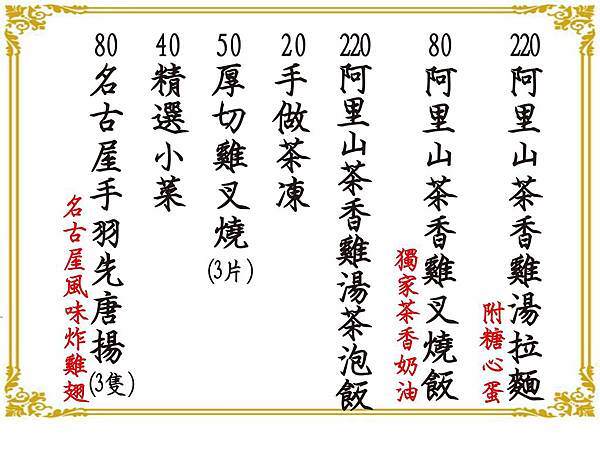 220 阿里山茶香雞湯拉麵
附糖心蛋
80 阿里山茶香雞叉燒飯
獨家茶香奶油
220 阿里山茶香雞湯茶泡飯
20 手做茶凍
50 厚切雞叉燒(3片)
40 精選小菜
80 名古屋手羽先唐揚(3隻)
名古屋風味炸雞翅